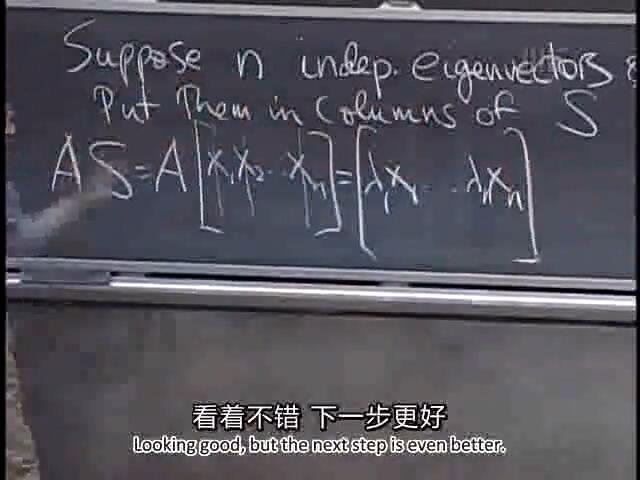 Suppose n indep. eigenvectors
Put them in columns of S
AS = A [x₁ x₂ ⋯ xₙ] = [λ₁x₁ ⋯ λₙxₙ]
看着不错 下一步更好
Looking good, but the next step is even better.